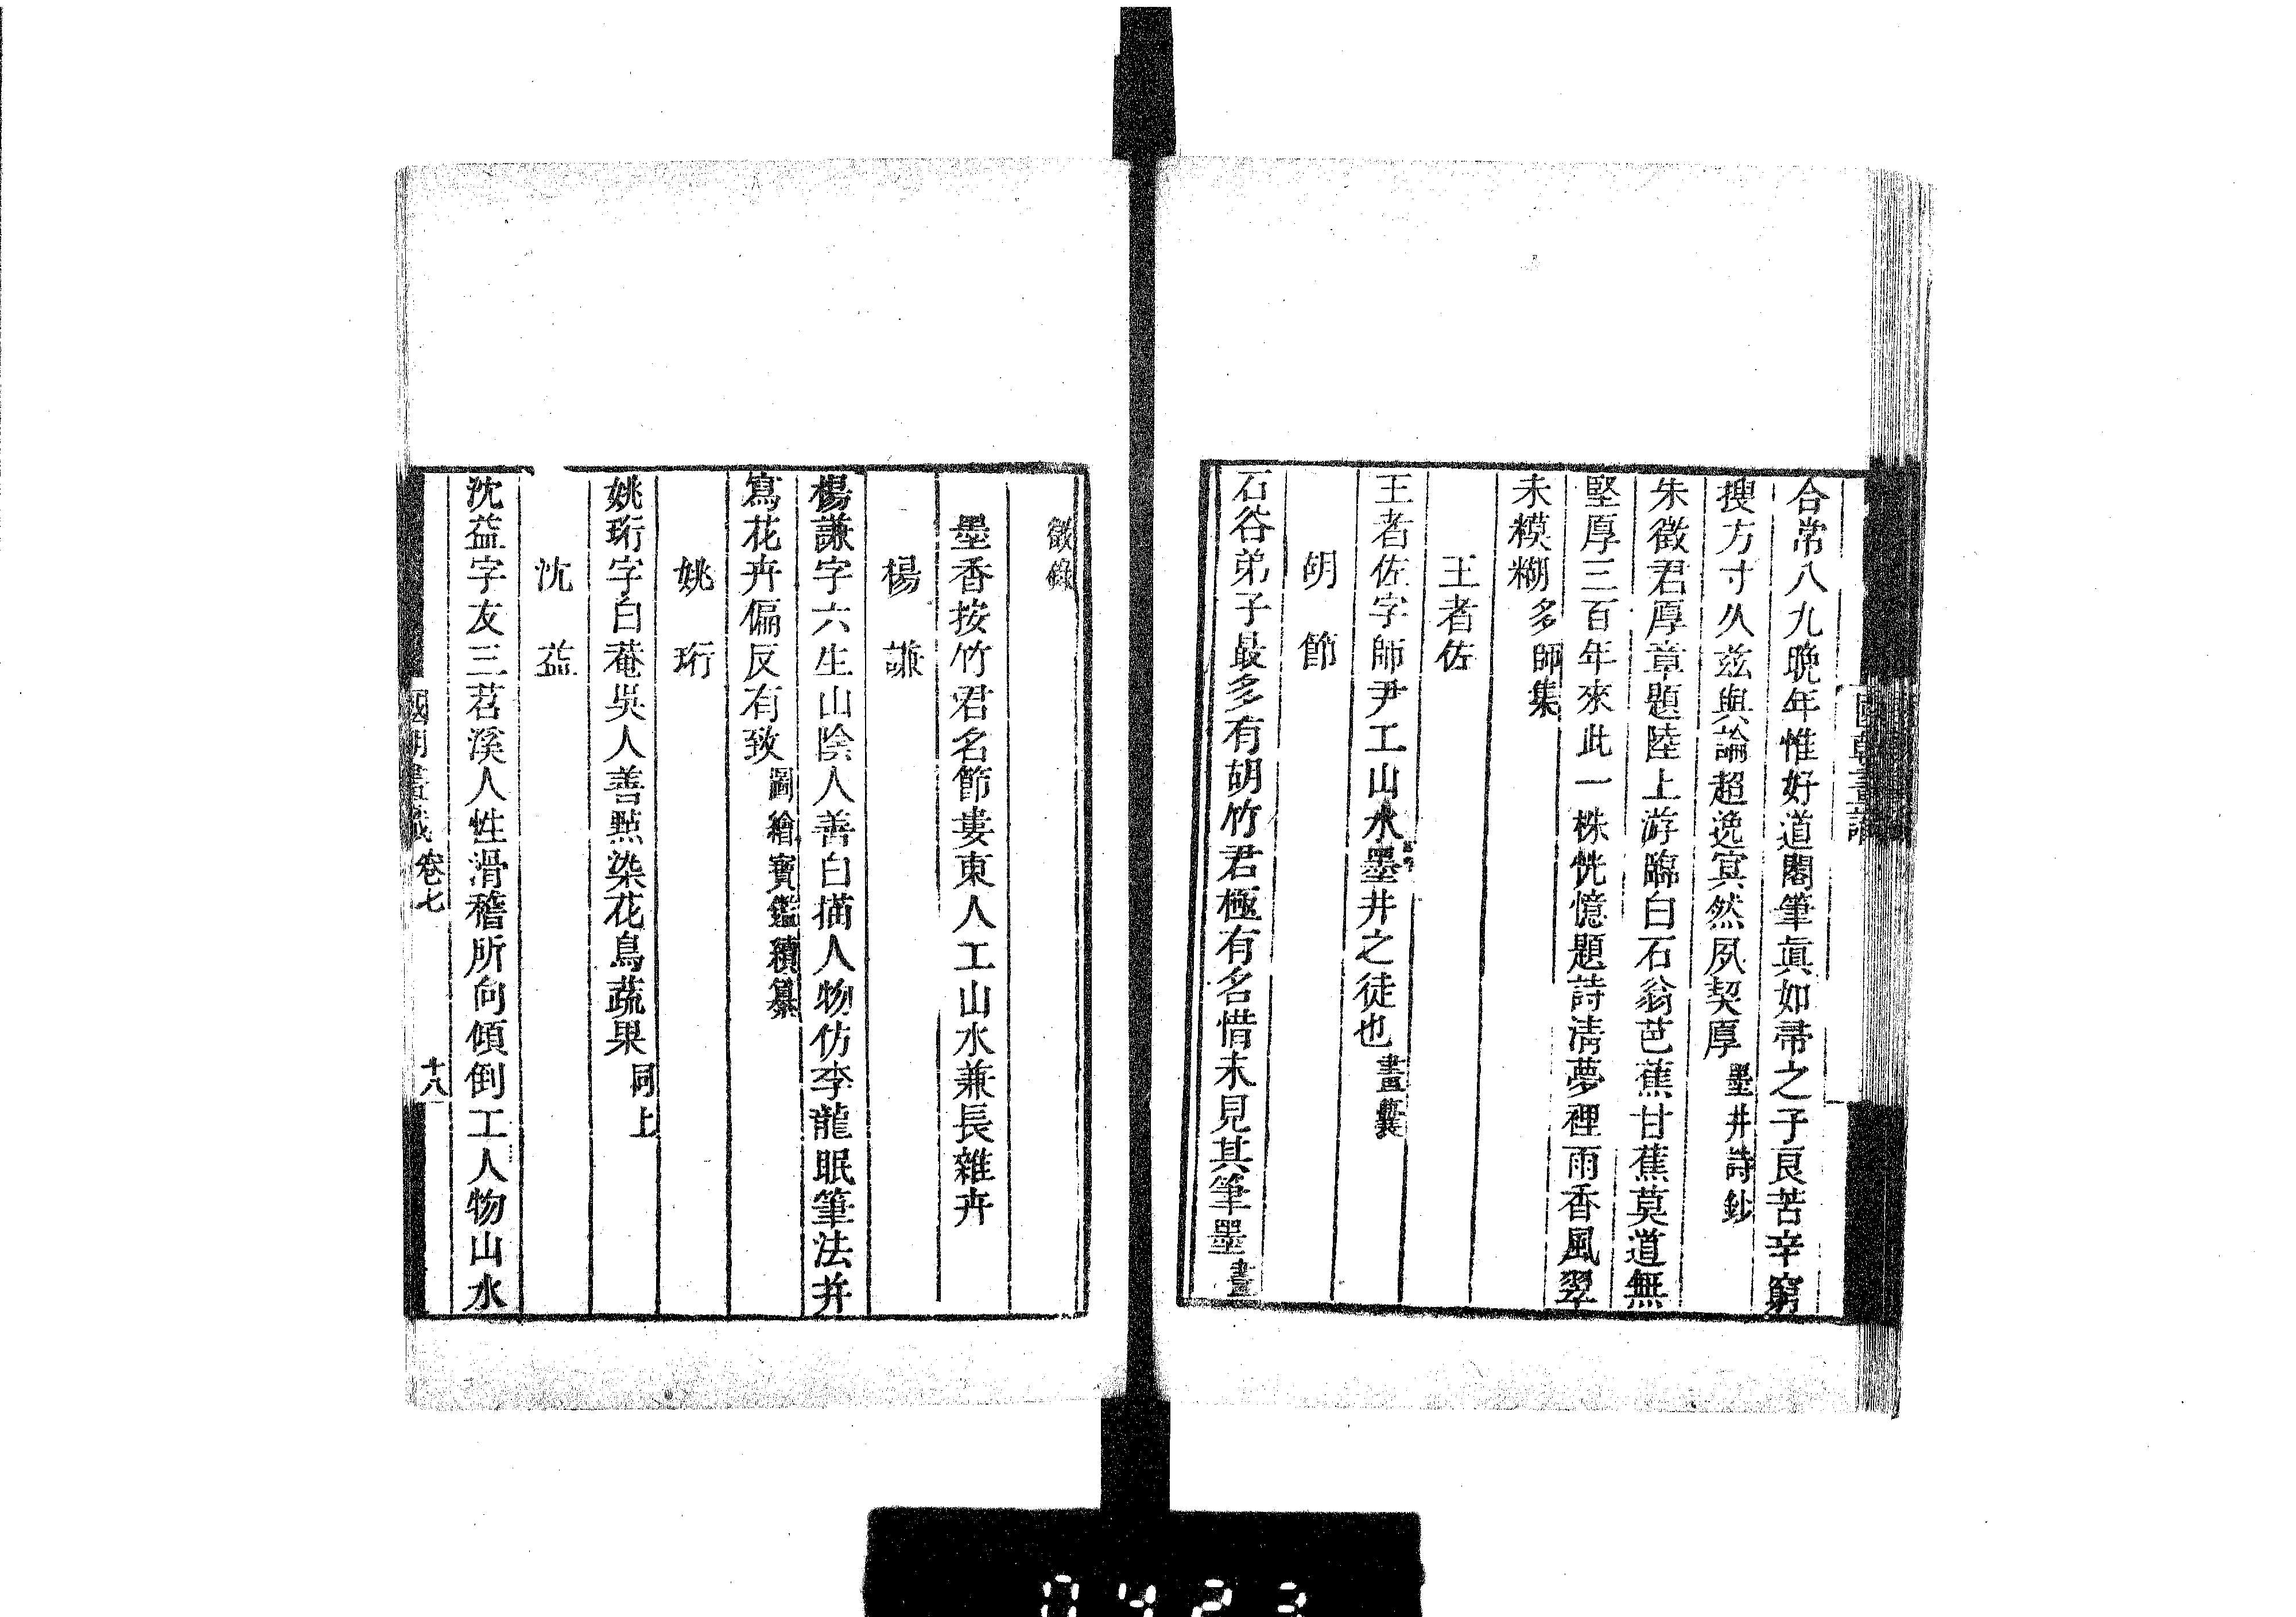 合常八九晚年惟好道閣筆眞如帚之子良苦辛窮
搜方寸久兹與論超逸寞然夙契厚墨井詩鈔
朱徵君厚章題陸上游臨白石翁芭蕉甘蕉莫道無
堅厚三百年來此一株恍憶題詩淸夢裡雨香風翠
未糢糊多師集
王者佐
王者佐字師尹工山水墨井之徒也畫囊
胡節
石谷弟子最多有胡竹君極有名惜未見其筆墨畫
徵錄
墨香按竹君名節婁東人工山水兼長雜卉
楊謙
楊謙字六生山陰人善白描人物仿李龍眠筆法幷
寫花卉偏反有致圖繪寶鑑續纂
姚珩
姚珩字白菴吳人善點染花鳥蔬果同上
沈益
沈益字友三苕溪人性滑稽所向傾倒工人物山水
國朝畫識卷七 十八
0423